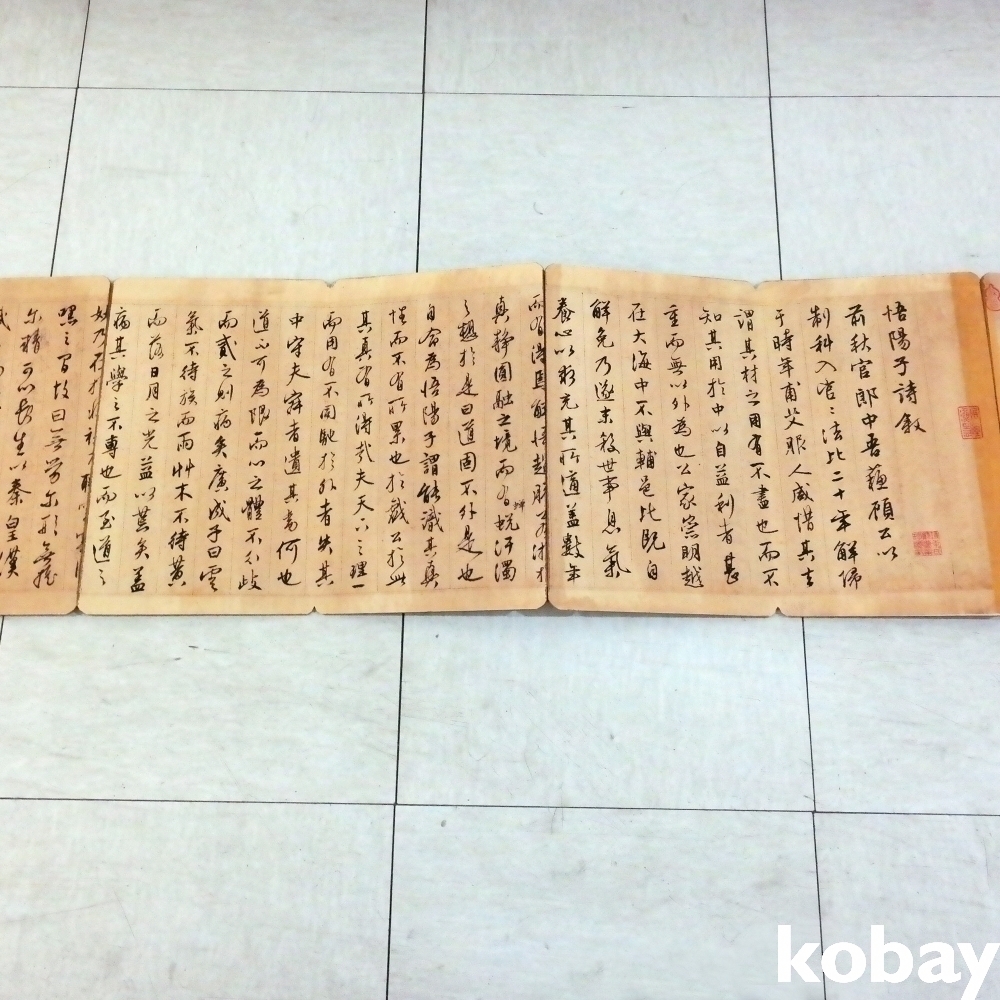 悟陽子詩敘
前秋官郎中吾蘓顧公以
制科入官官法比二十年解佩
于時年甫艾服人咸惜其去
謂其材之用有不盡也而不
知其用於中以自益利者甚
重而無以外為也公家崇明越
在大海中不與輔邑比既自
解免乃遂末殺世事息氣
養心以彩充其所道蓋數年
而有得焉解悟超脫若沐於
真靜圓融之境而有蛻汙濁
之趣於是曰道固不外是也
自命為悟陽子謂能識其真
性而不有所累也於戲公於此
其真有所得哉夫天下之理一
中守夫寂者遺其為何也
而用有不周馳於外者失其
道不可為限而心之體不分歧
而貳之則病矣廣成子曰雲
氣不待族而雨艸木不待黃
而落日月之光益以荒矣蓋
病其學之不專也而至道之
妙乃不
嘿之間故曰無勞爾形無搖
爾精可以長生以秦皇漢
kobay